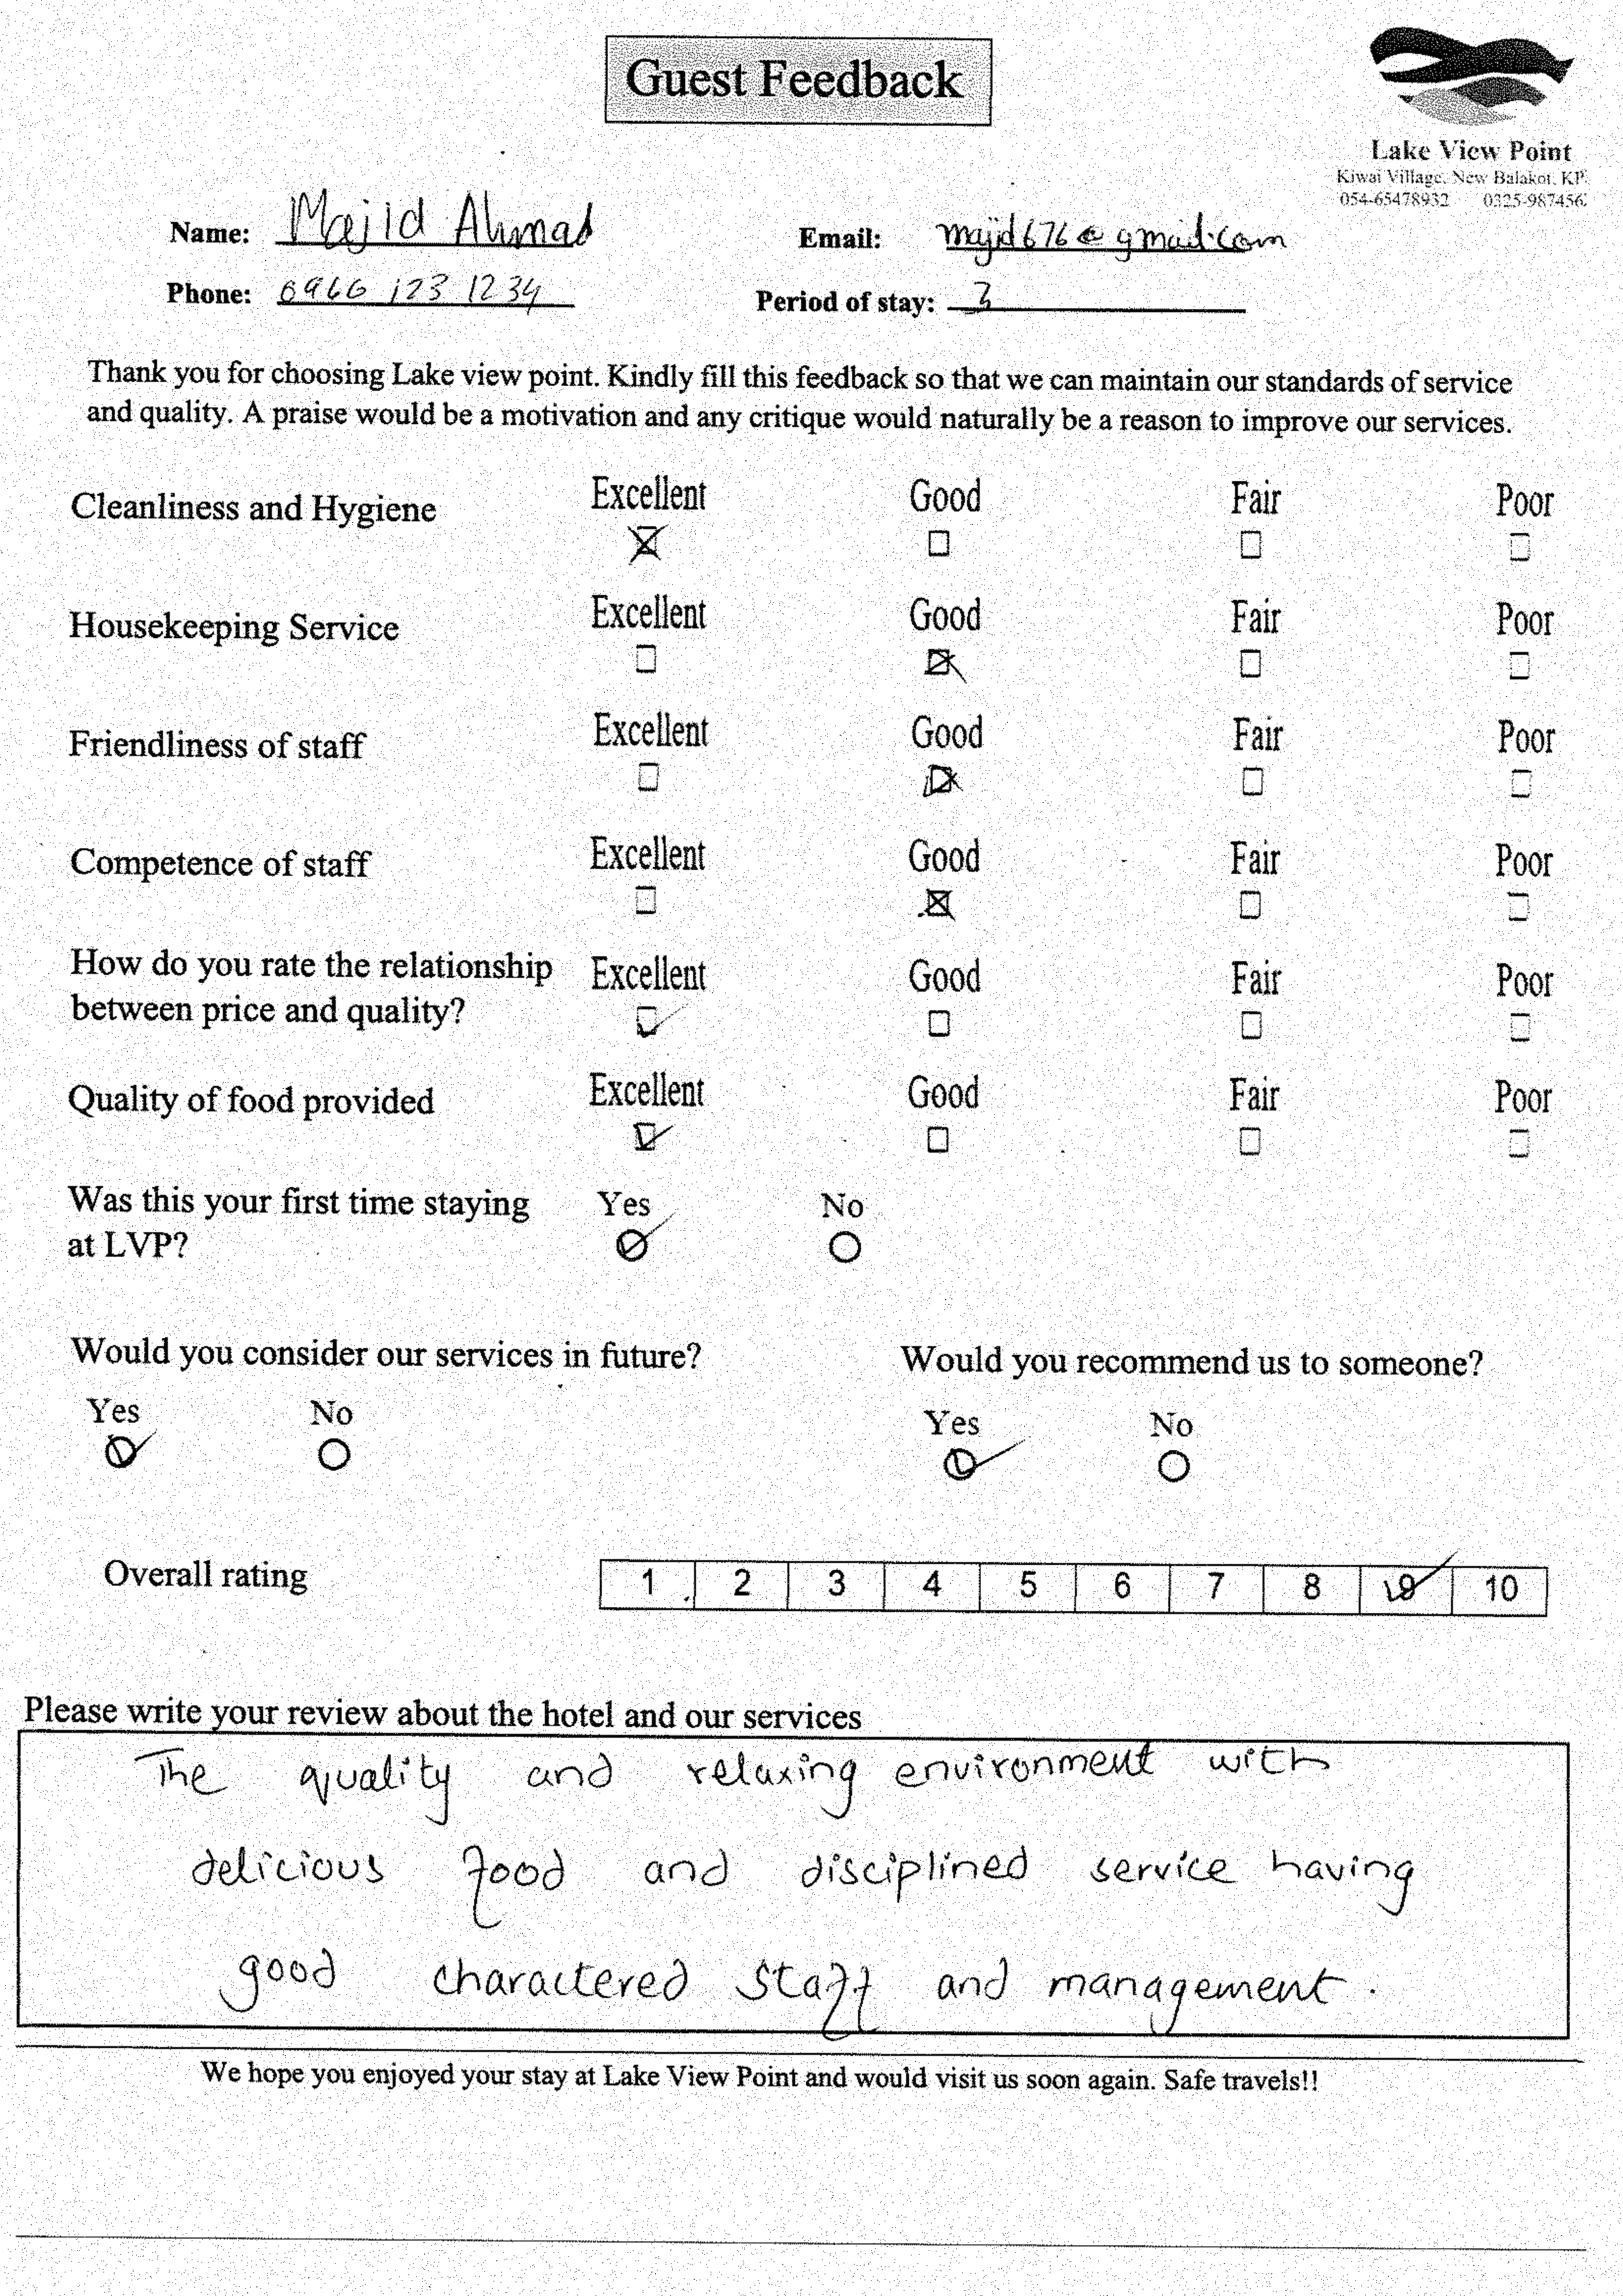 Guest Feedback
Lake View Point
Kiwai Village, New Balakot, KP.
054-65478932 0325-987456
Name: Majid Ahmad
Email: majid676@gmail.com
Phone: 0966 123 1234
Period of stay: 3
Thank you for choosing Lake view point. Kindly fill this feedback so that we can maintain our standards of service
and quality. A praise would be a motivation and any critique would naturally be a reason to improve our services.
Cleanliness and Hygiene Excellent Good Fair Poor
Housekeeping Service Excellent Good Fair Poor
Friendliness of staff Excellent Good Fair Poor
Competence of staff Excellent Good Fair Poor
How do you rate the relationship
between price and quality? Excellent Good Fair Poor
Quality of food provided Excellent Good Fair Poor
Was this your first time staying
at LVP? Yes No
Would you consider our services in future?
Yes No
Would you recommend us to someone?
Yes No
Overall rating 1 2 3 4 5 6 7 8 9 10
Please write your review about the hotel and our services
The quality and relaxing environment with
delicious food and disciplined service having
good charactered staff and management.
We hope you enjoyed your stay at Lake View Point and would visit us soon again. Safe travels!!